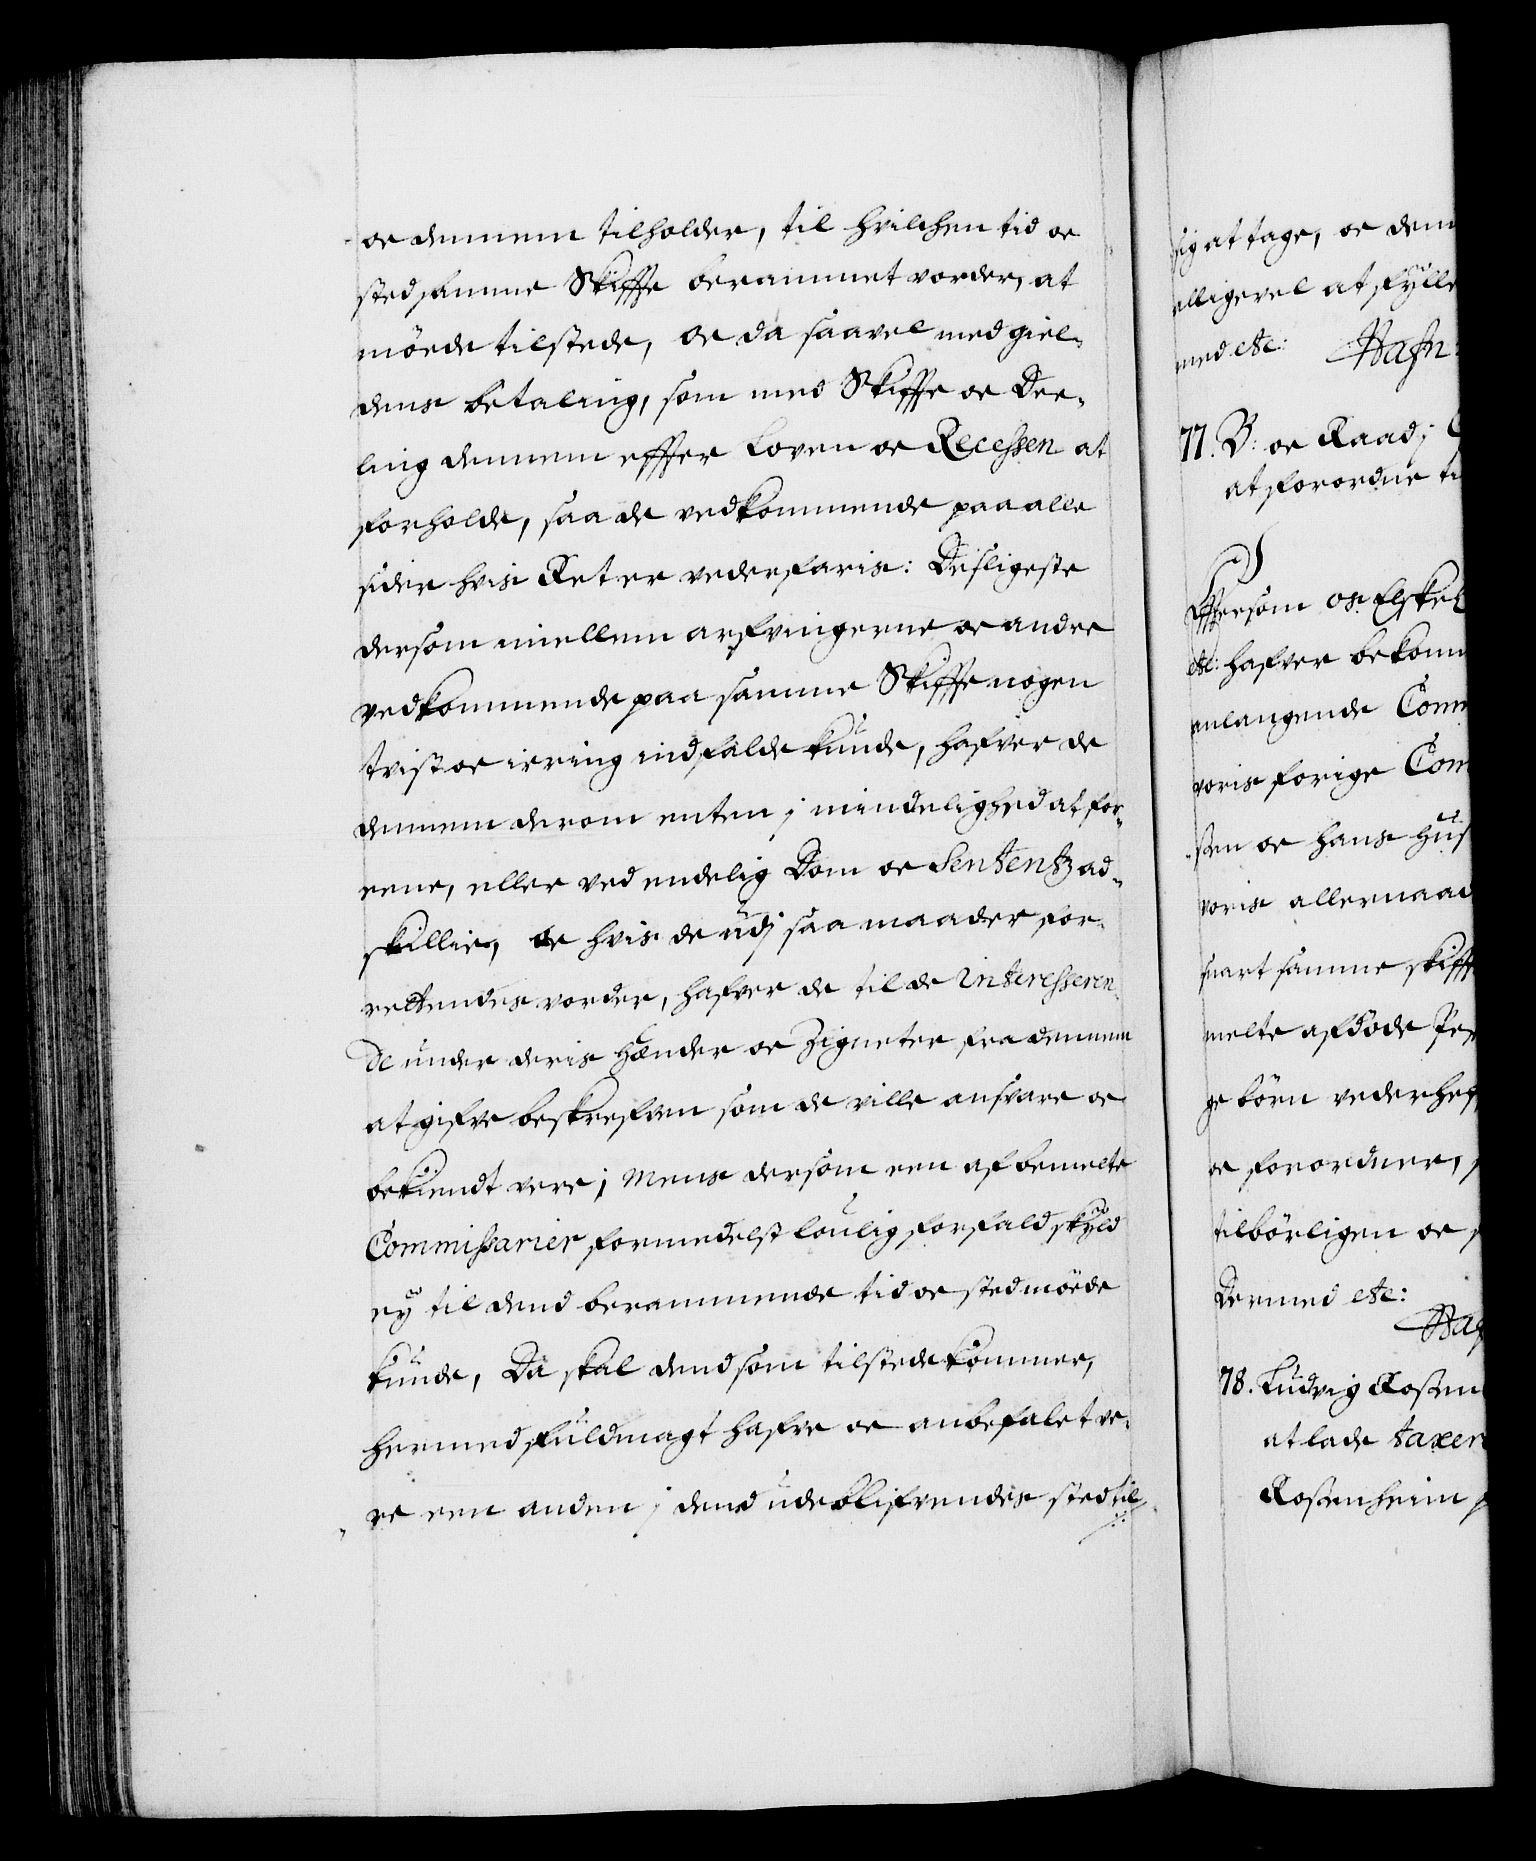 oc dennem tilholder, til hvilchen tid oc
sted samme Skiffte berammet vorder, at
möede tilstede, oc da saavel med giel-
dens betaling, som med Skiffte oc Dee-
ling dennem effter Loven oc Recessen at
forholde, saa de vedkommende paa alle
sider hvis Ret er vederfaris: Desligeste
dersom imellem arfvingerne oc andre
vedkommende paa samme Skiffte nogen
tvist oc irring indfalde kunde, hafver de
dennem derom enten j mindelighed at for-
eene, eller ved endelig Dom oc Sententz ad-
skillie, oc hvis de udj saa maader for-
rettendes vorder, hafver de til de interesseren-
de under deris Hænder oc Zigneter fra dennem
at gifve beskrefven som de ville ansvare oc
bekiendt vere; Mens dersom een af bemelte
Commissarier formedelst loulig forfald skyld
ey til dend berammende tid oc sted möede
kunde, Da skal dend som tilstede kommer,
hermed fuldmagt hafve oc anbefalet ve-
re een anden j dend udeblifvendes sted til
sig at tage, oc dem
alligevel at fylle
med etc: Hafn:
77. B: oc Raad j
at forordne
Efftersom os Elskel
etc: hafver bekom
anlangende Com
voris forige Com
sen oc hans Hus
voris allernaad
snart samme skifft
melte afdöde
ge börn vederhef
oc forordner,
tilbörligen oc
Dermed etc:
Haf
78. Ludvig Rosen
at lade taxer
Rosenheim